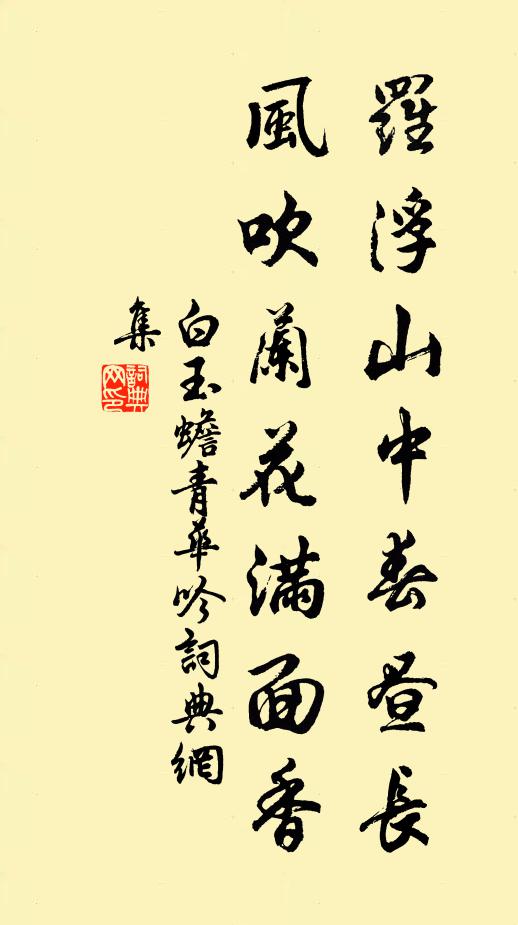 羅浮山中春晝長
風吹蘭花滿面香
白玉蟾青華吟詞典網
集
詞典網印